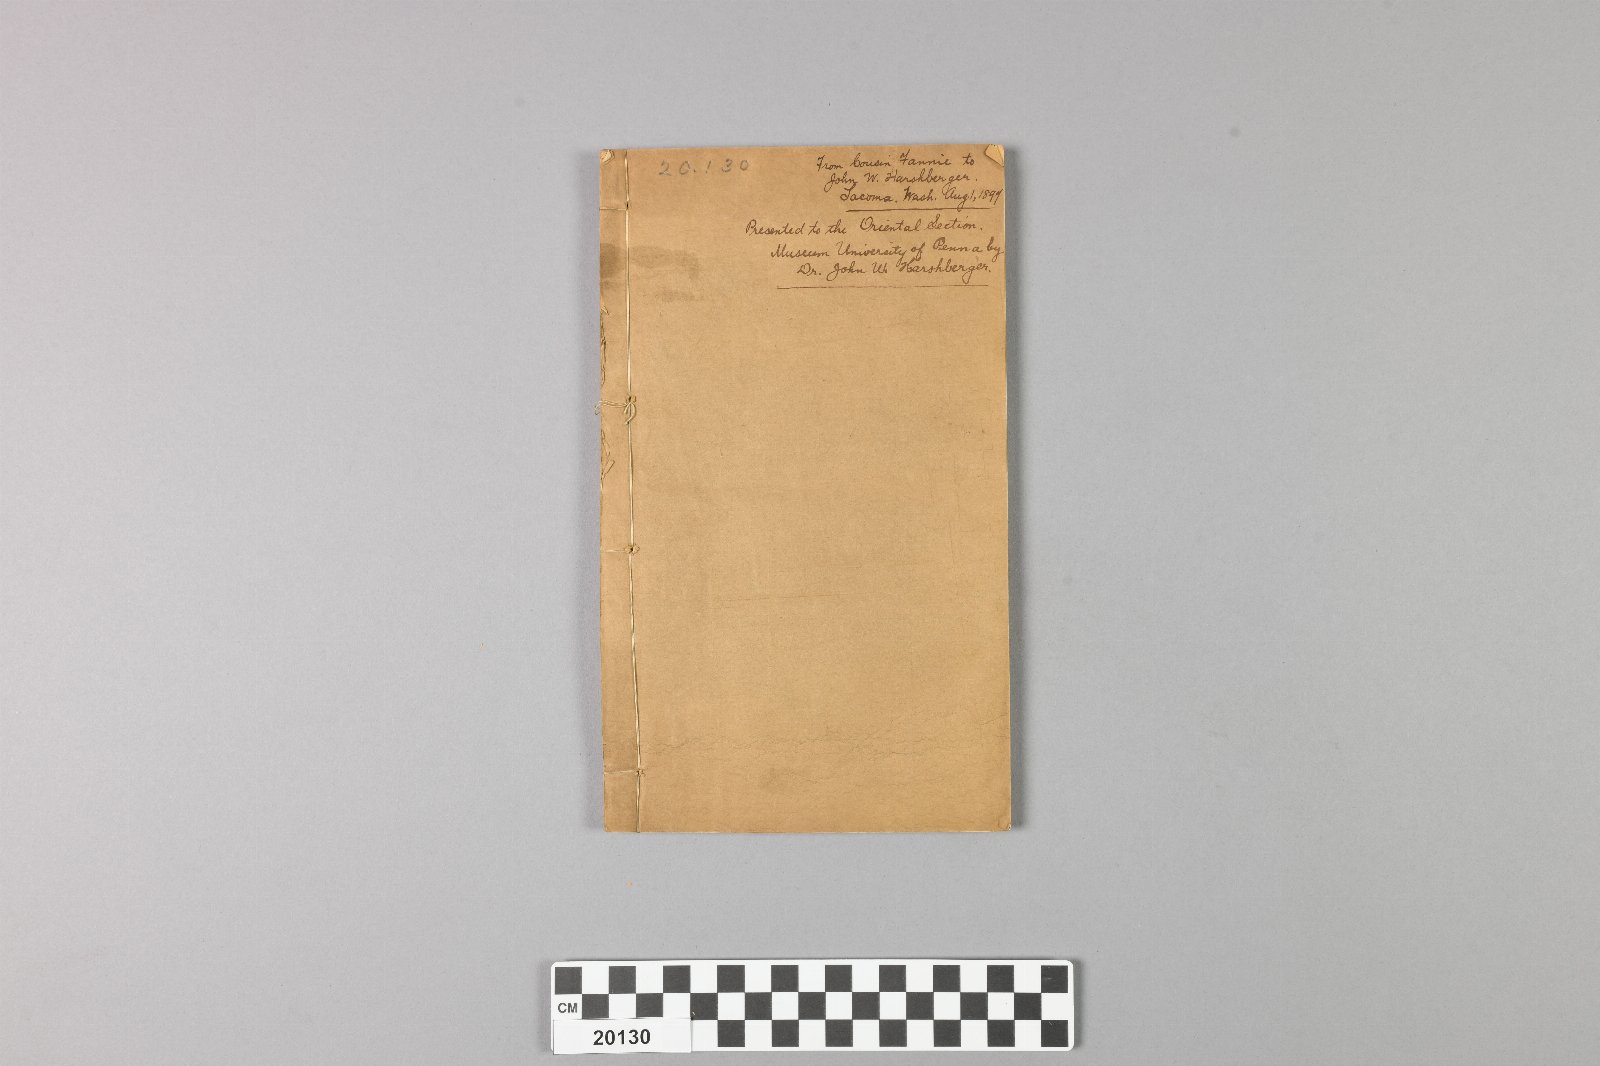 20.130
From Cousin Fannie to
John W. Harshberger.
Tacoma. Wash. Aug 1, 1897
Presented to the Oriental Section.
Museum University of Penna by
Dr. John W. Harshberger.
CM
20130